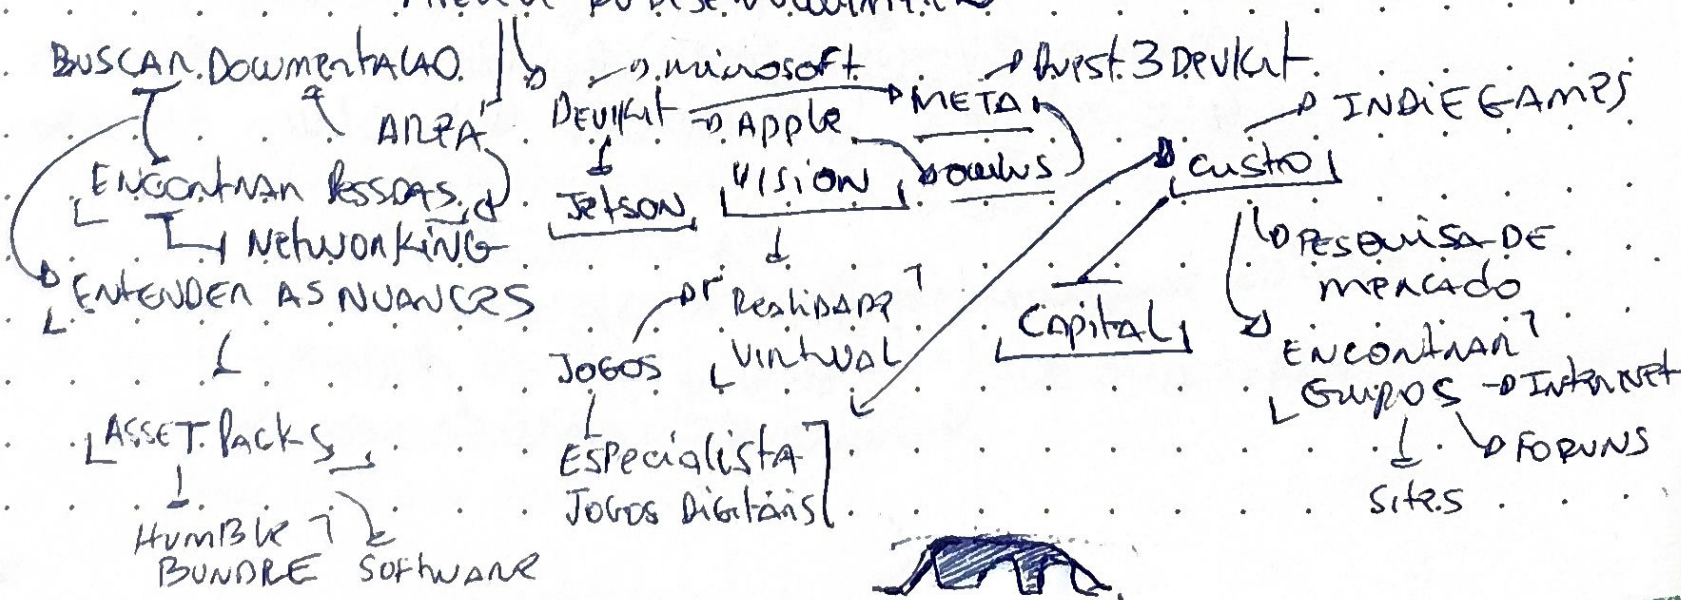 BUSCAR DOCUMENTACAO
AREA
ENCONTRAR PESSOAS
NETWORKING
ENTENDER AS NUANCES
ASSET PACKS
HUMBLE
BUNDRE
SOFTWARE
DEVKit
microsoft
Apple
VISION
META
Quest 3 Devkit
oculus
JetSON
Realidade
Virtual
JOGOS
Especialista
JOGOS DIGITAIS
custo
INDIE GAMES
Capital
PESQUISA DE
mercado
ENCONTRAR
GRUPOS
INTERNET
FORUNS
Sites